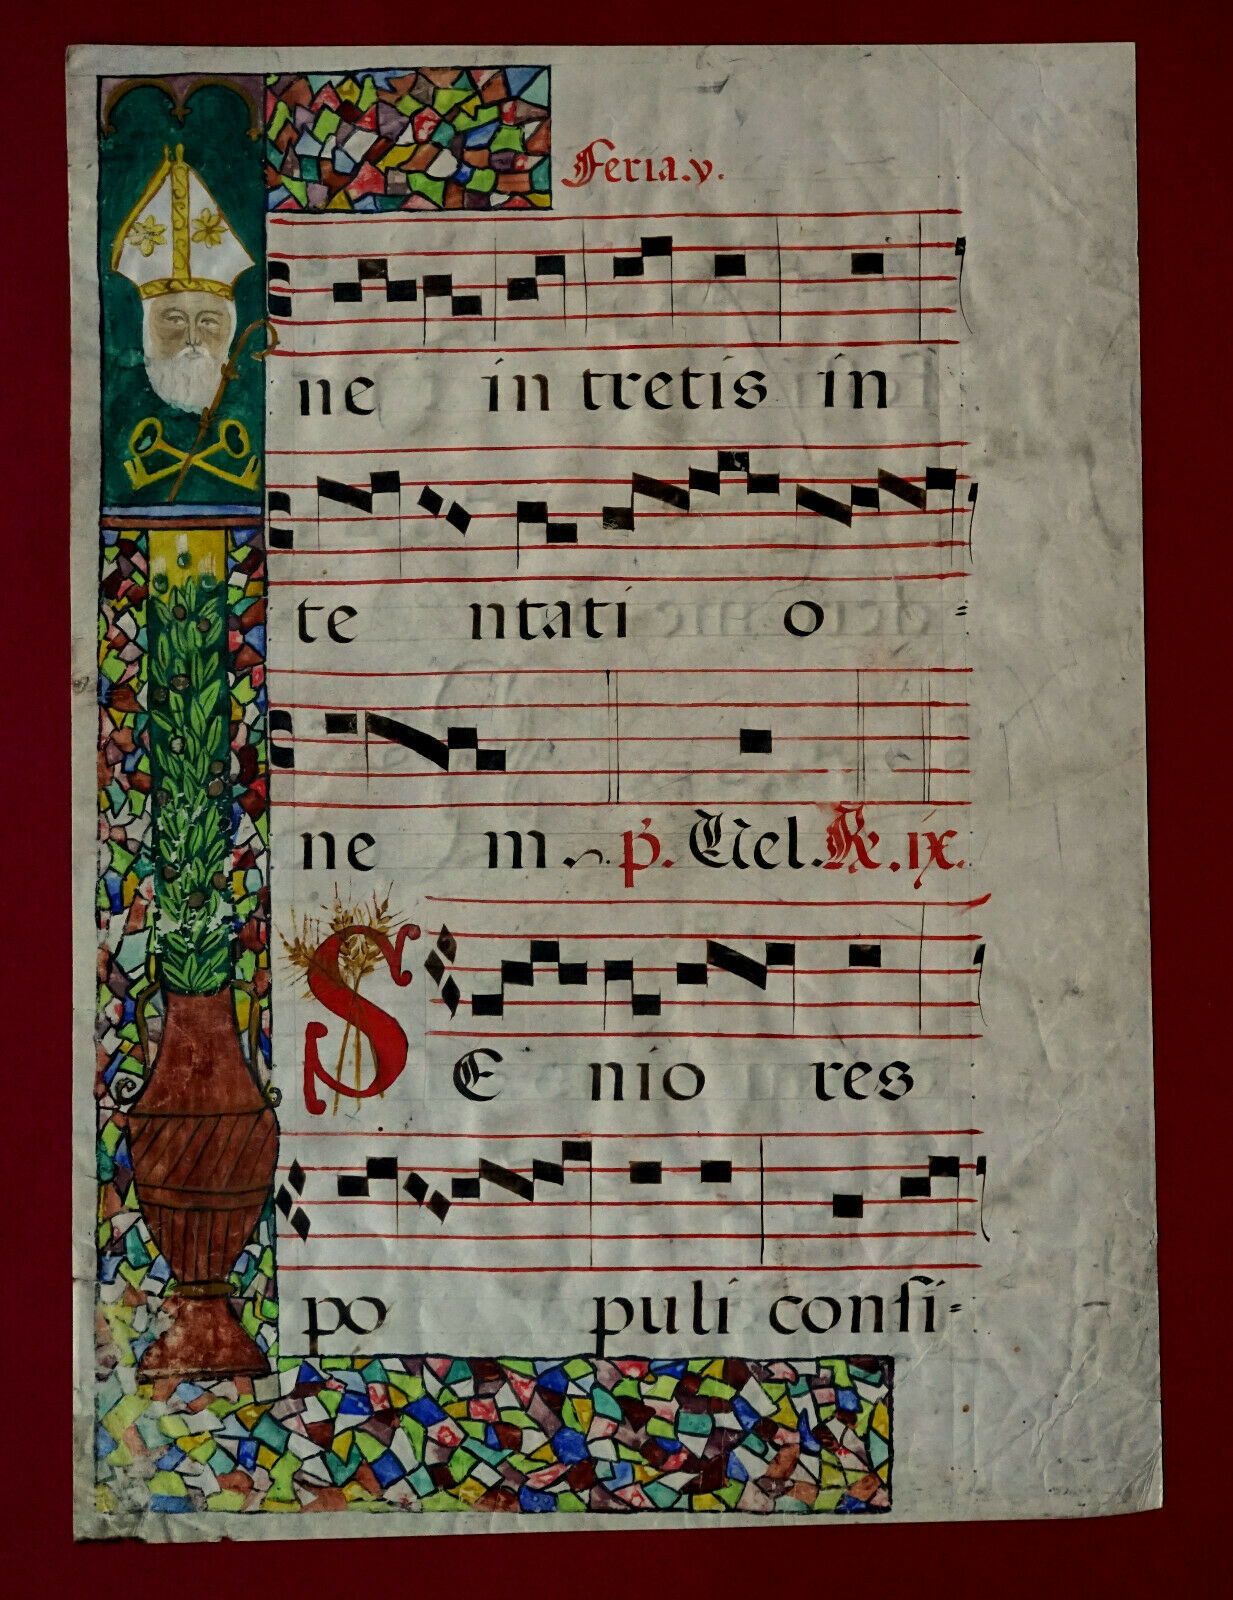 Feria.v.
ne in tretis in
te ntati o=
ne m. p. Vel. R. ix.
SE nio res
po puli consi=